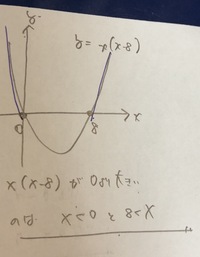 y
y = x(x-8)
0 8 x
x(x-8) が 0より大きい
のは x<0 と 8<x